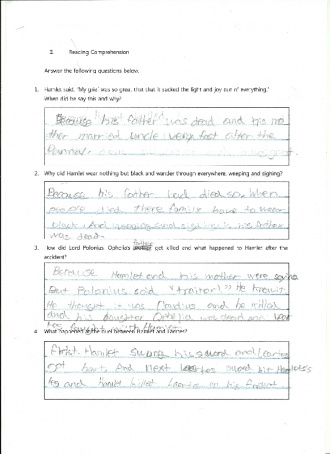 2. Reading Comprehension
Answer the following questions below.
1. Hamlet said, 'My grief was so great that that it sucked the light and joy out of everything.'
When did he say this and why?
Because his father was dead and his mo
ther married uncle very fast after the
2. Why did Hamlet wear nothing but black and wander through everywhere, weeping and sighing?
Because his father had died so, when
people died there family have to wear
black. And weeping and sighing is his father
was dead.
3. How did Lord Polonius, Ophelia's father get killed and what happened to Hamlet after the
accident?
Because Hamlet and his mother were saying
But Polonius said "traitor!" He
He thought it was Claudius and he killed
and his daughter Ophelia was dead and
4. What happened in the duel between Hamlet and Laertes?
First. Hamlet his sword and Laertes
got hurts. And next Laertes sword his Hamlet's
leg and Hamlet killed Laertes